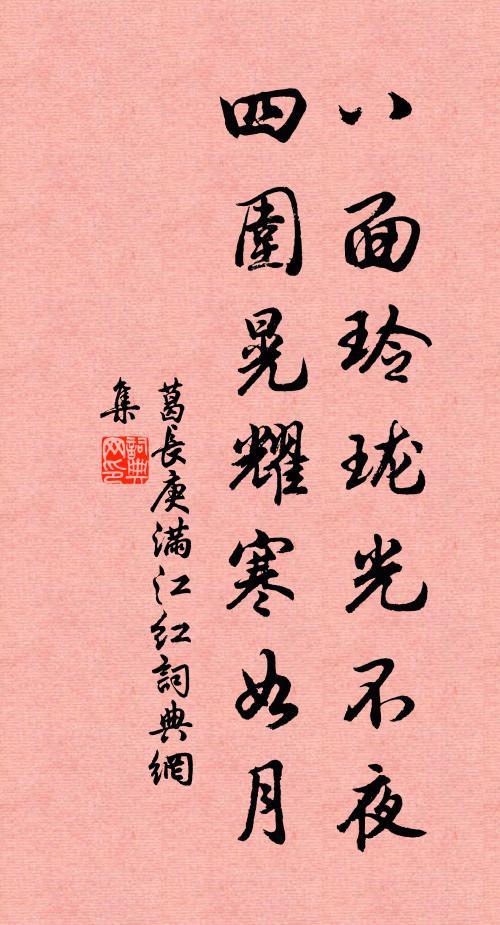 八面玲珑光不夜
四圍晃耀寒如月
葛長庚滿江紅詞典網
集
詞典
网印